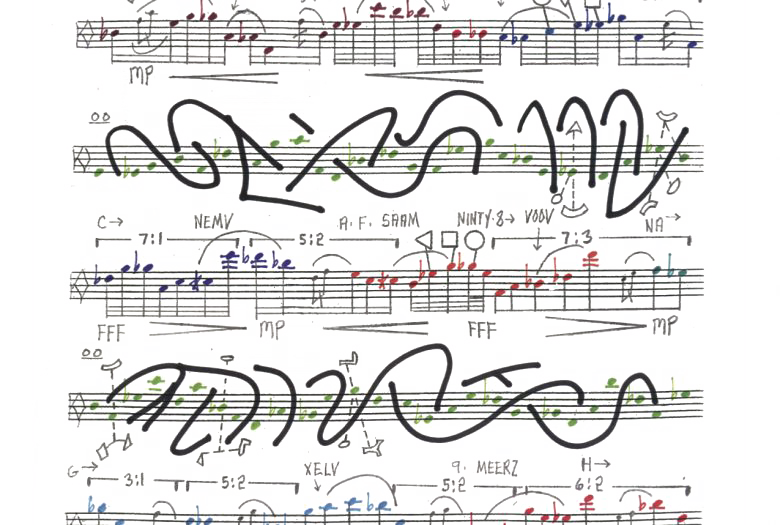 MP
00
C→ NEMV A. F. SAAM NINTY·8→ VOOV NA→
7:1 5:2 7:3
FFF MP FFF MP
00
G→ XELV 9. MEERZ H→
3:1 5:2 5:2 6:2